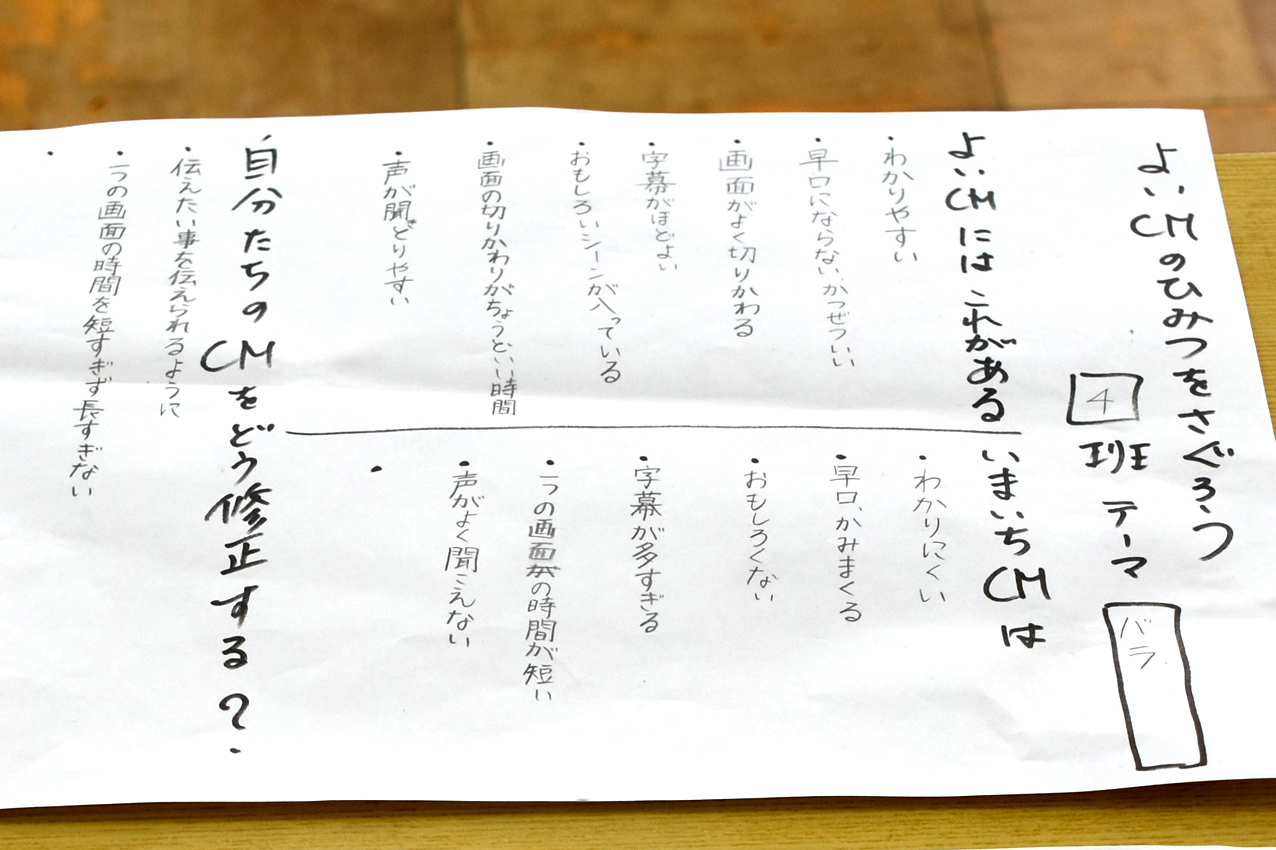 よいCMのひみつをさぐろう
4班 テーマ バラ
よいCMにはこれがある
・わかりやすい
・早口にならない、かつぜついい
・画面がよく切りかわる
・字幕がほどよい
・おもしろいシーンが入っている
・画面の切りかわりがちょうといい時間
・声が聞どりやすい
いまいちCMは
・わかりにくい
・早口、かみまくる
・おもしろくない
・字幕が多すぎる
・一つの画面の時間が短い
・声がよく聞こえない
・
自分たちのCMをどう修正する?
・伝えたい事を伝えられるように
・一つの画面の時間を短すぎず長すぎない
・